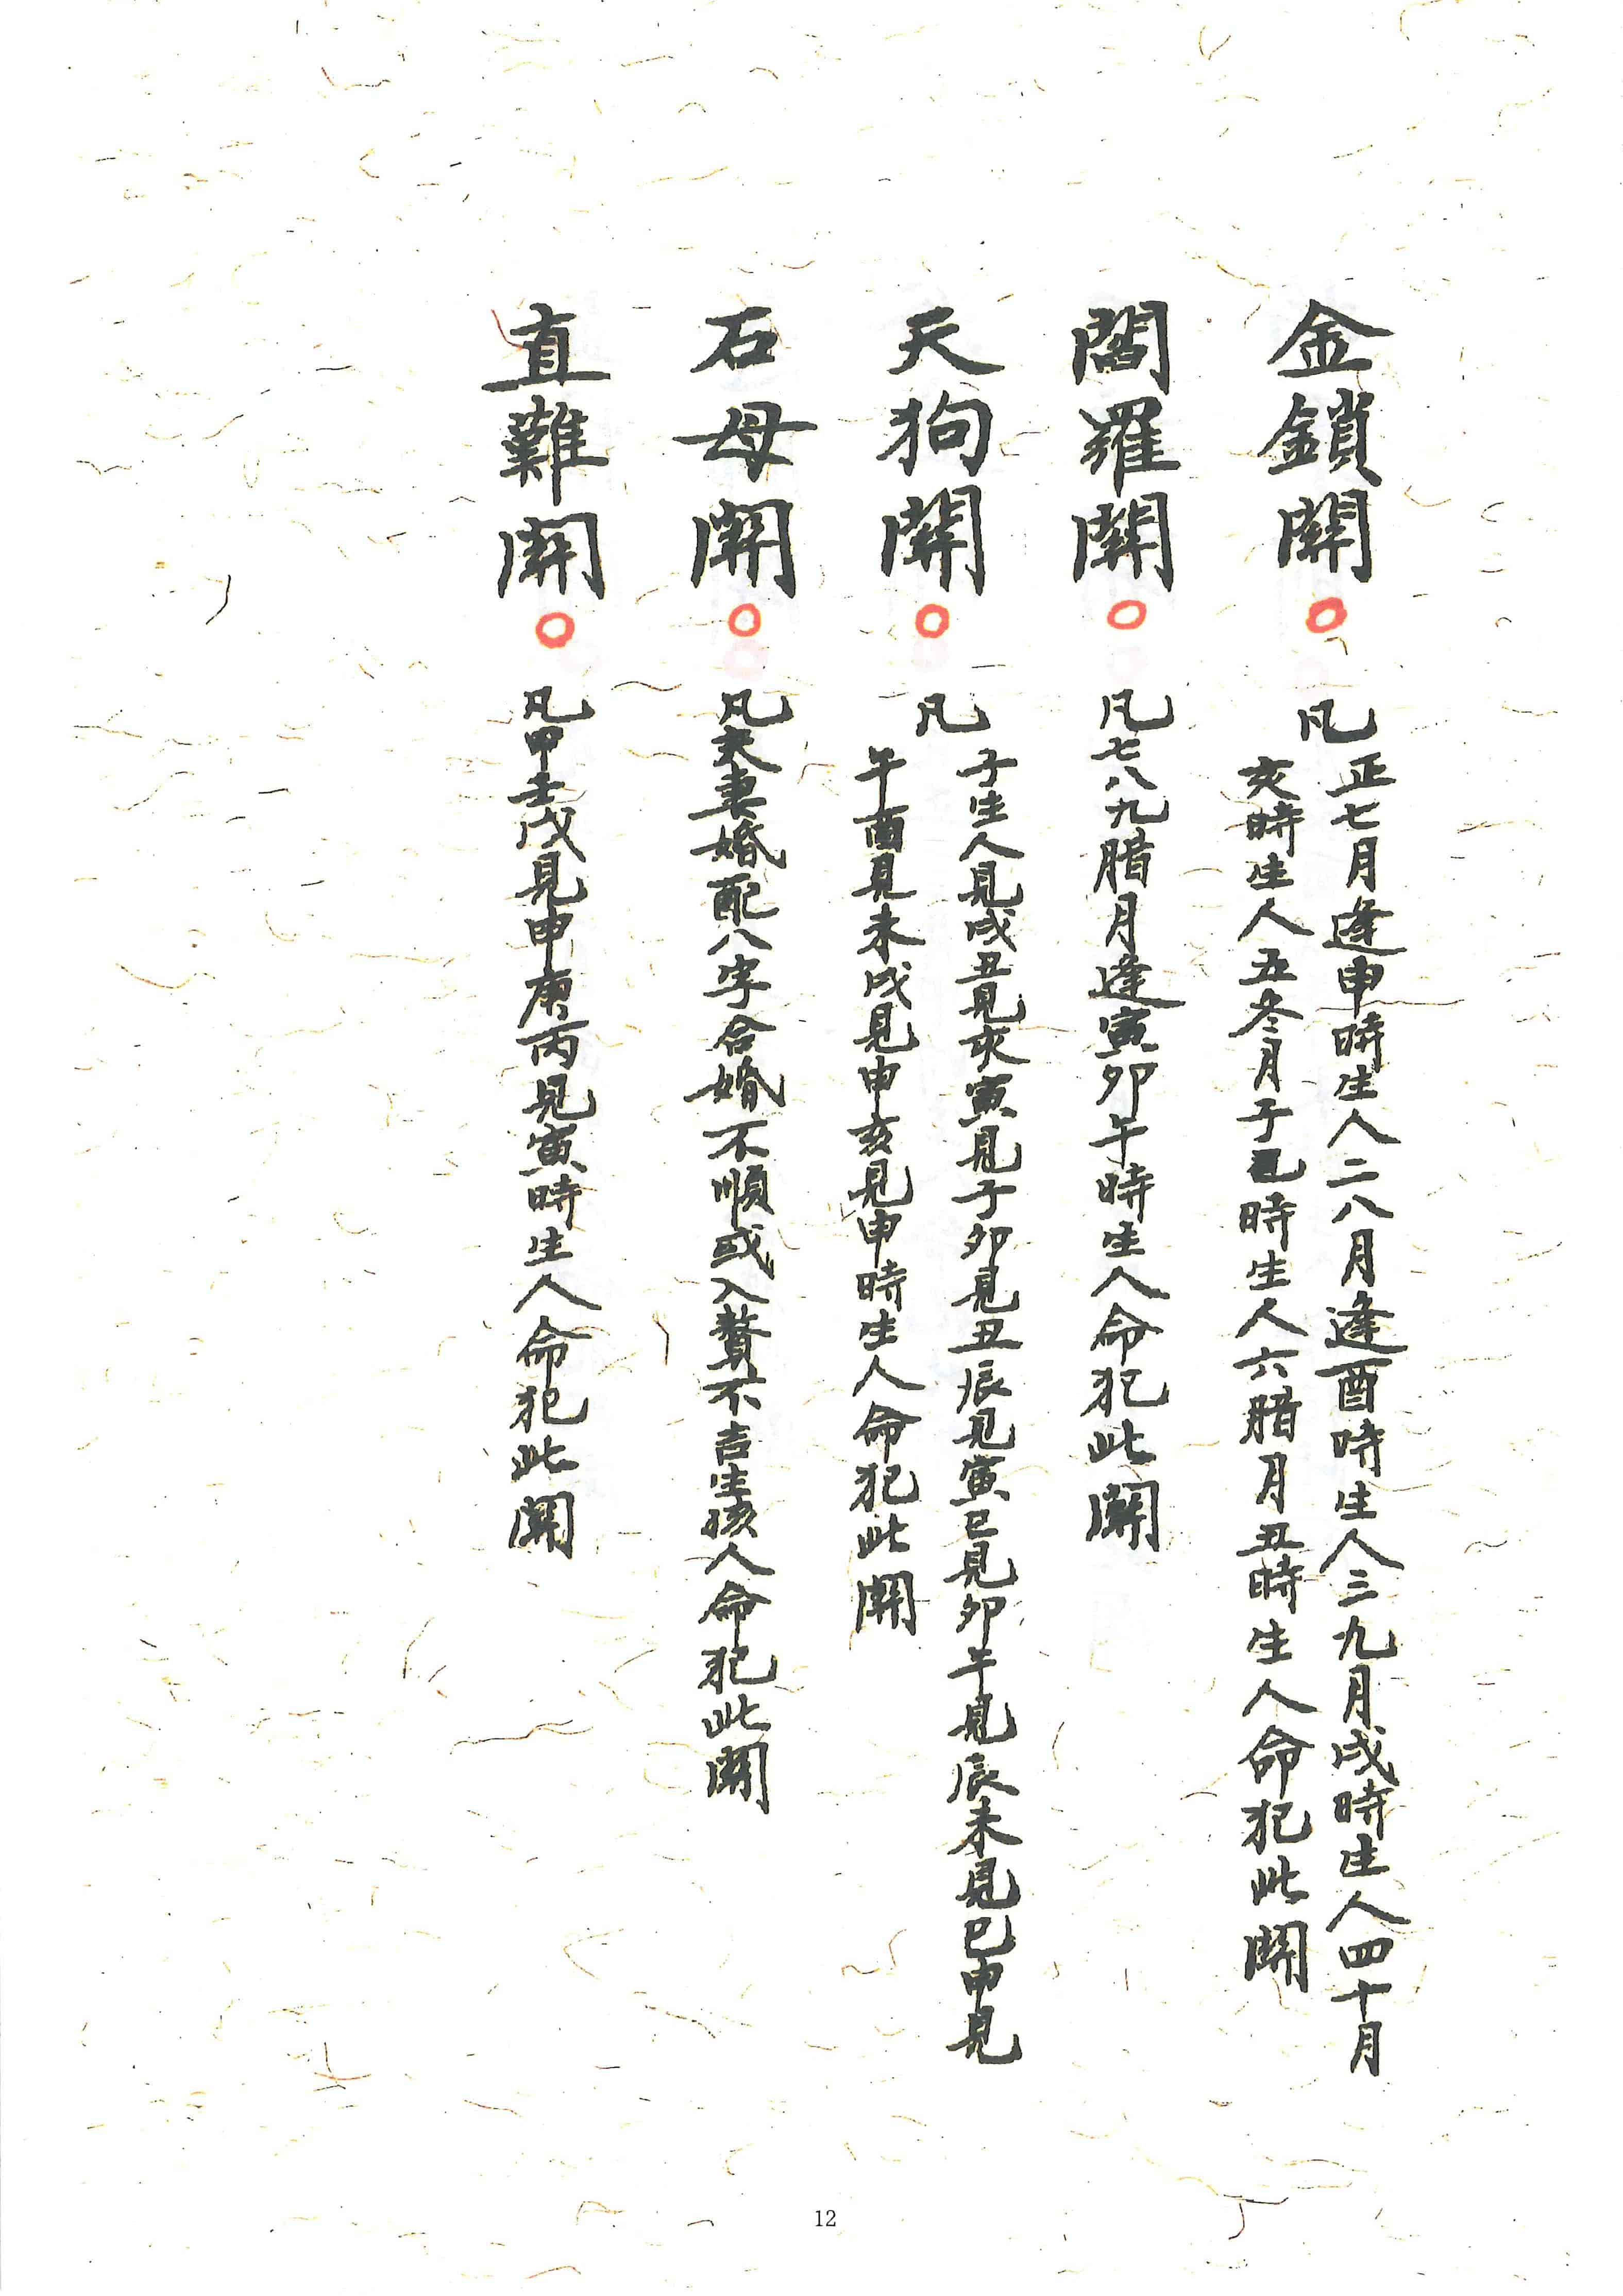 金鎖關〇
凡
正七月逢申時生人二八月逢酉時生人三九月戌時生人四十月
亥時生人五冬月子時生人六腊月丑時生人命犯此關
閻羅關〇
凡七八九腊月逢寅卯午時生人命犯此關
天狗關〇
凡
子生人見戌丑見亥寅見子卯見丑辰見寅巳見卯午見辰未見巳申見
午酉見未戌見申亥見申時生人命犯此關
石母關〇
凡夫妻婚配八字合婚不順或入贅不吉生孩人命犯此關
直難關〇
凡甲壬戊見申庚丙見寅時生人命犯此關
12